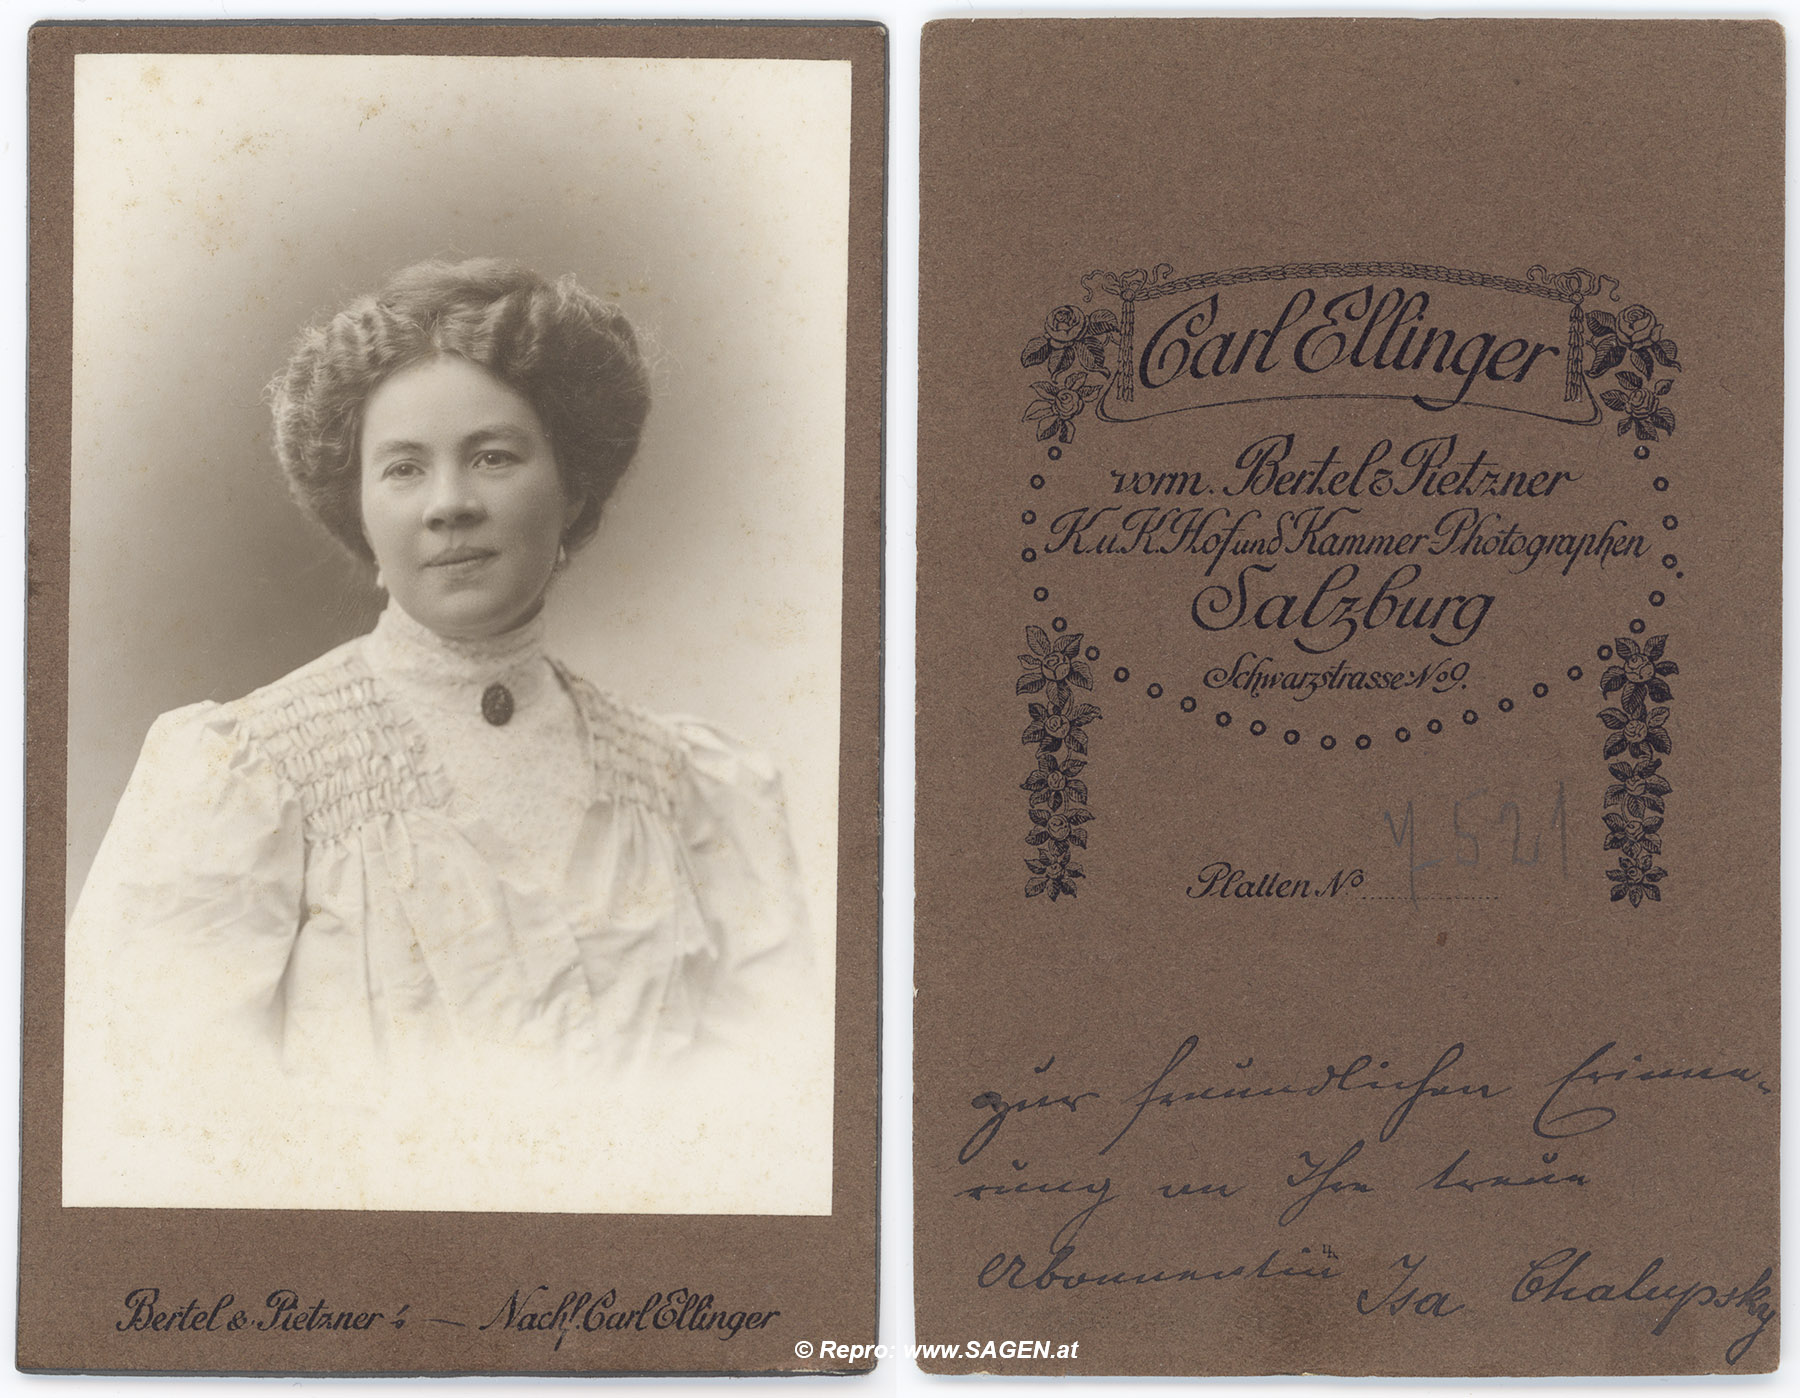 Bertel & Pietzner's — Nachf. Carl Ellinger
Carl Ellinger
vorm. Bertel & Pietzner
K.u.K. Hof und Kammer-Photographen
Salzburg
Schwarzstrasse No 9.
7521
Platten No
zur freundlichen Erinne-
rung an Ihre treue
Abonnentin Isa Chalupsky
© Repro: www.SAGEN.at